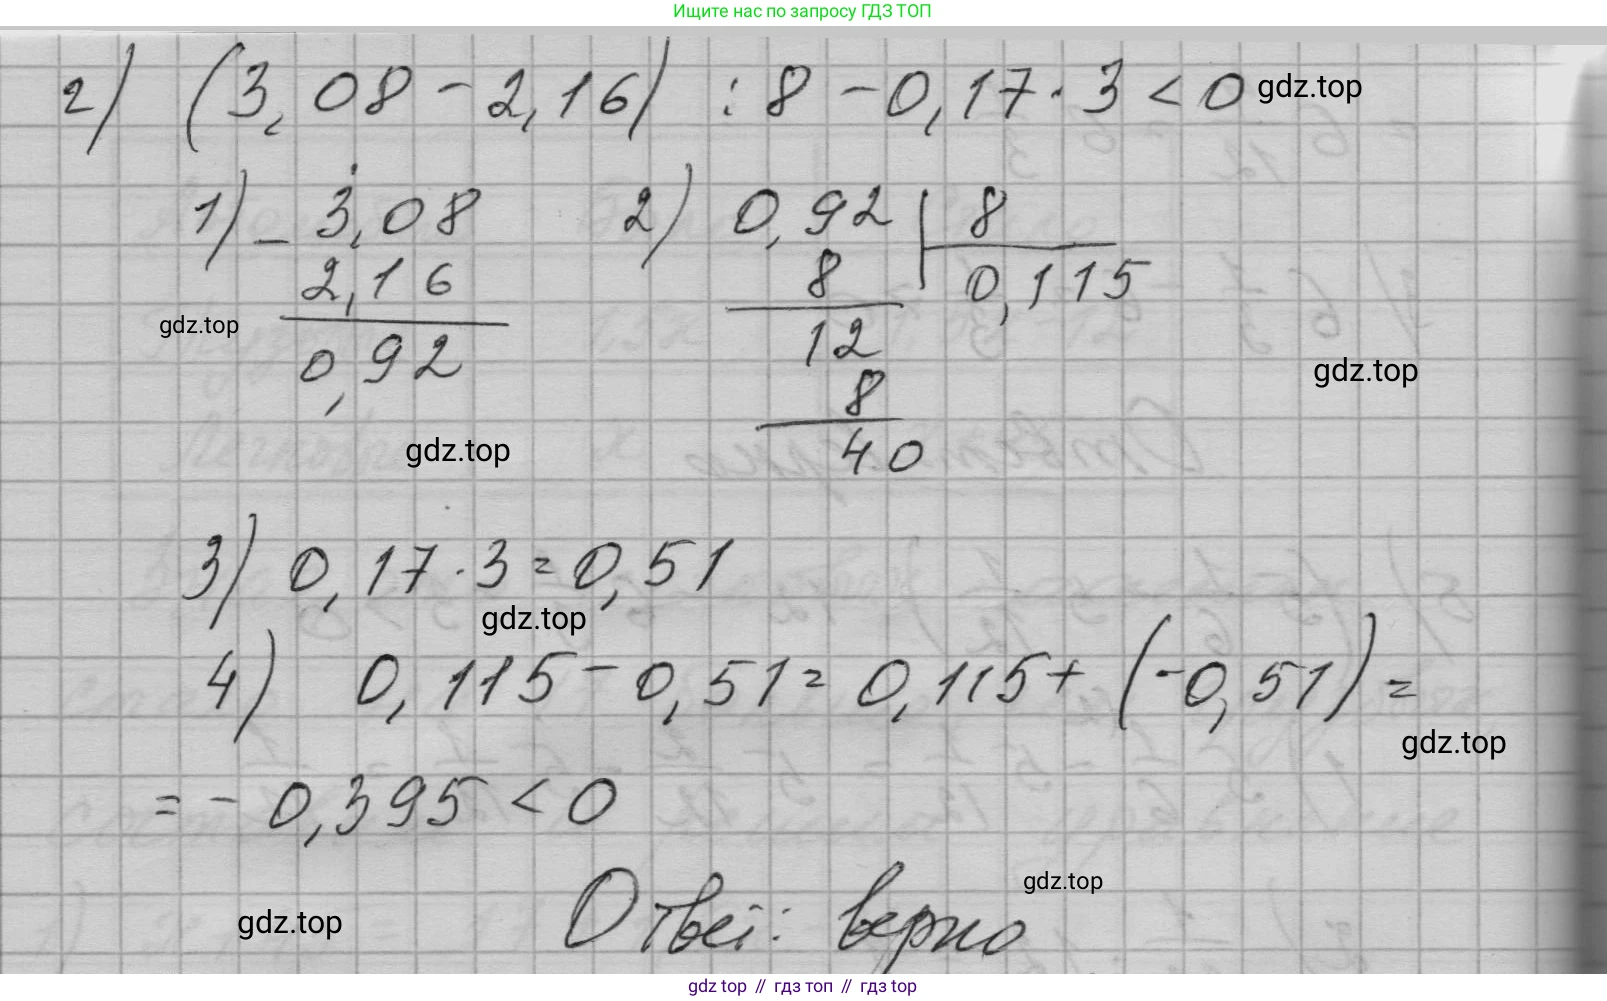 Ищите нас по запросу ГДЗ ТОП
г) (3,08 - 2,16) : 8 - 0,17 · 3 < 0 gdz.top
1) - 3,08 2) 0,92 | 8
2,16 8 0,115
gdz.top
0,92 12
gdz.top
8
gdz.top 40
3) 0,17 · 3 = 0,51
gdz.top
4) 0,115 - 0,51 = 0,115 + (-0,51) =
gdz.top
= - 0,395 < 0
gdz.top
gdz.top Ответ: верно
gdz top // гдз топ // gdz top